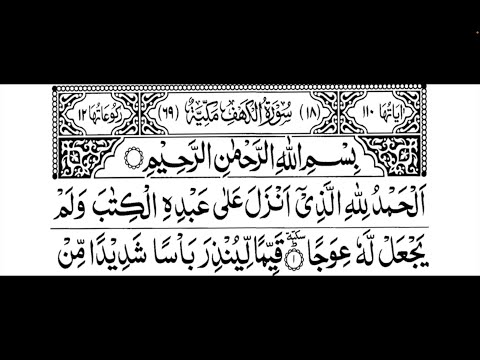 اٰيَاتُهَا ١١٠ (١٨) سُوْرَةُ الْكَهْفِ مَكِّيَّةٌ (٦٩) رُكُوْعَاتُهَا ١٢
بِسْمِ اللّٰهِ الرَّحْمٰنِ الرَّحِيْمِ
اَلْحَمْدُ لِلّٰهِ الَّذِيْۤ اَنْزَلَ عَلٰى عَبْدِهِ الْكِتٰبَ وَلَمْ
يَجْعَلْ لَّهٗ عِوَجًا ؕ سكتة ۝١ قَيِّمًا لِّيُنْذِرَ بَاْسًا شَدِيْدًا مِّنْ